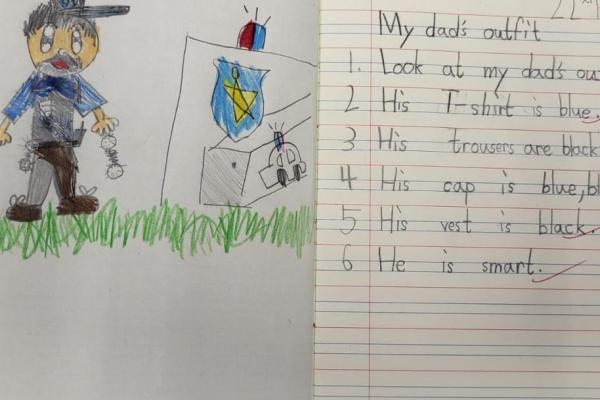 My dad's outfit
1. Look at my dad's
2 His T-shirt is blue.
3 His trousers are black
4 His cap is blue,
5 His vest is black.
6 He is smart.